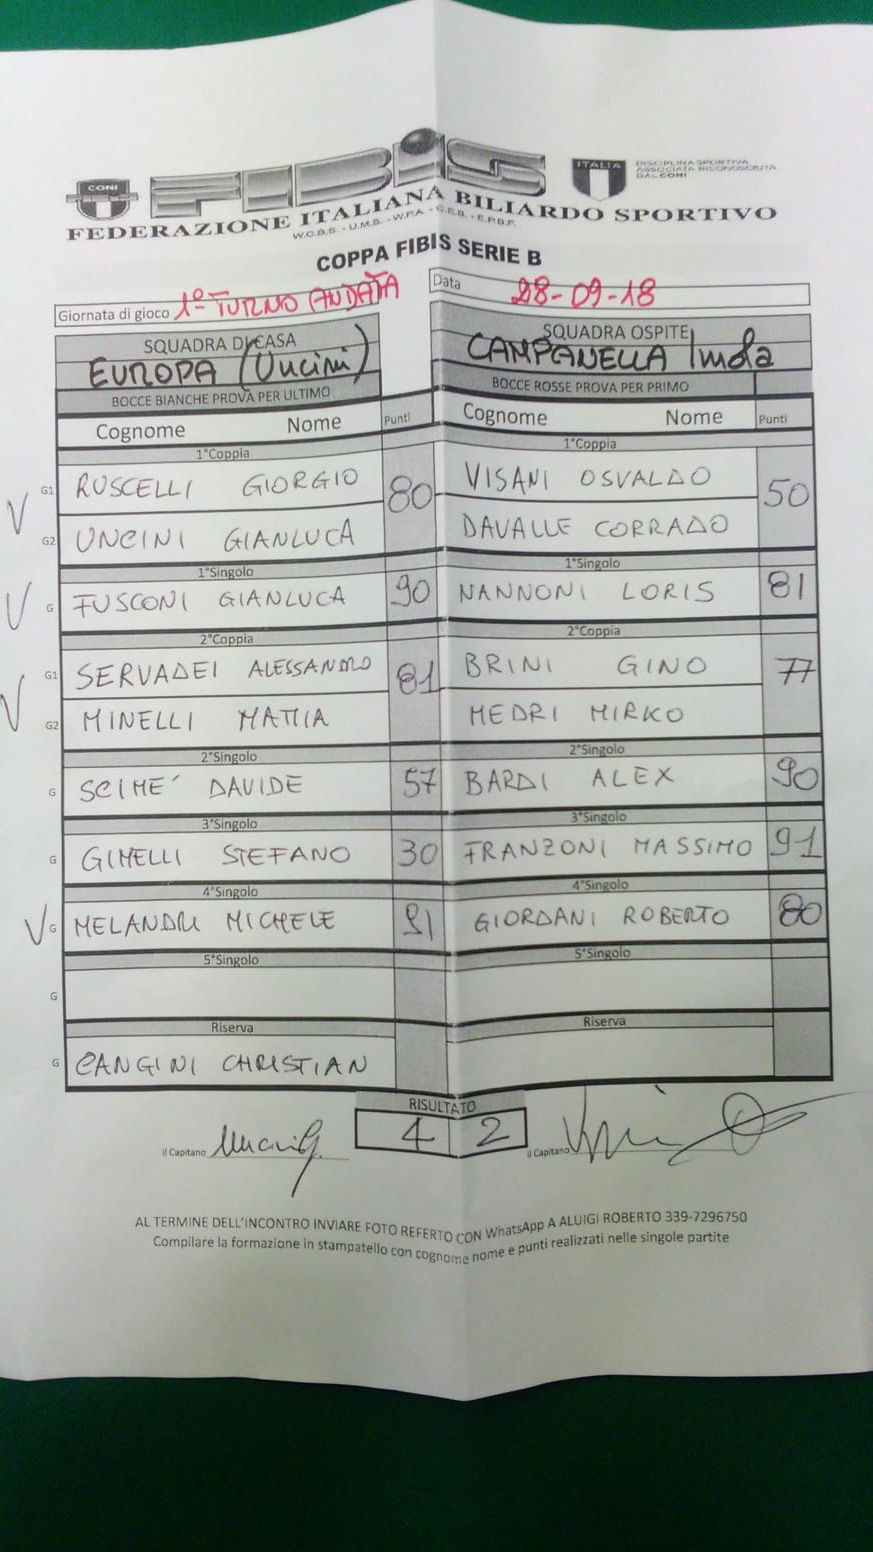 CONI FIBIS ITALIA DISCIPLINA SPORTIVA
ASSOCIATA RICONOSCIUTA
DAL CONI
FEDERAZIONE ITALIANA BILIARDO SPORTIVO
W.C.B.S. - U.M.B. - W.P.A. - C.E.B. - E.P.B.F.
COPPA FIBIS SERIE B
Giornata di gioco 1° TURNO (ANDATA Data 28-09-18
SQUADRA DI CASA SQUADRA OSPITE
EUROPA (Uncini) CAMPANELLA Imola
BOCCE BIANCHE PROVA PER ULTIMO BOCCE ROSSE PROVA PER PRIMO
Cognome Nome Punti Cognome Nome Punti
1°Coppia 1°Coppia
V G1 RUSCELLI GIORGIO 80 VISANI OSVALDO 50
G2 UNCINI GIANLUCA DAVALLE CORRADO
1°Singolo 1°Singolo
V G FUSCONI GIANLUCA 90 NANNONI LORIS 81
2°Coppia 2°Coppia
V G1 SERVADEI ALESSANDRO 81 BRINI GINO 77
G2 MINELLI MATTIA MEDRI MIRKO
2°Singolo 2°Singolo
G SCIME´ DAVIDE 57 BARDI ALEX 90
3°Singolo 3°Singolo
G GIMELLI STEFANO 30 FRANZONI MASSIMO 91
4°Singolo 4°Singolo
V G MELANDRI MICHELE 91 GIORDANI ROBERTO 80
5°Singolo 5°Singolo
G
Riserva Riserva
G CANGINI CHRISTIAN
RISULTATO
il Capitano 4 2 il Capitano
AL TERMINE DELL'INCONTRO INVIARE FOTO REFERTO CON WhatsApp A ALUIGI ROBERTO 339-7296750
Compilare la formazione in stampatello con cognome nome e punti realizzati nelle singole partite